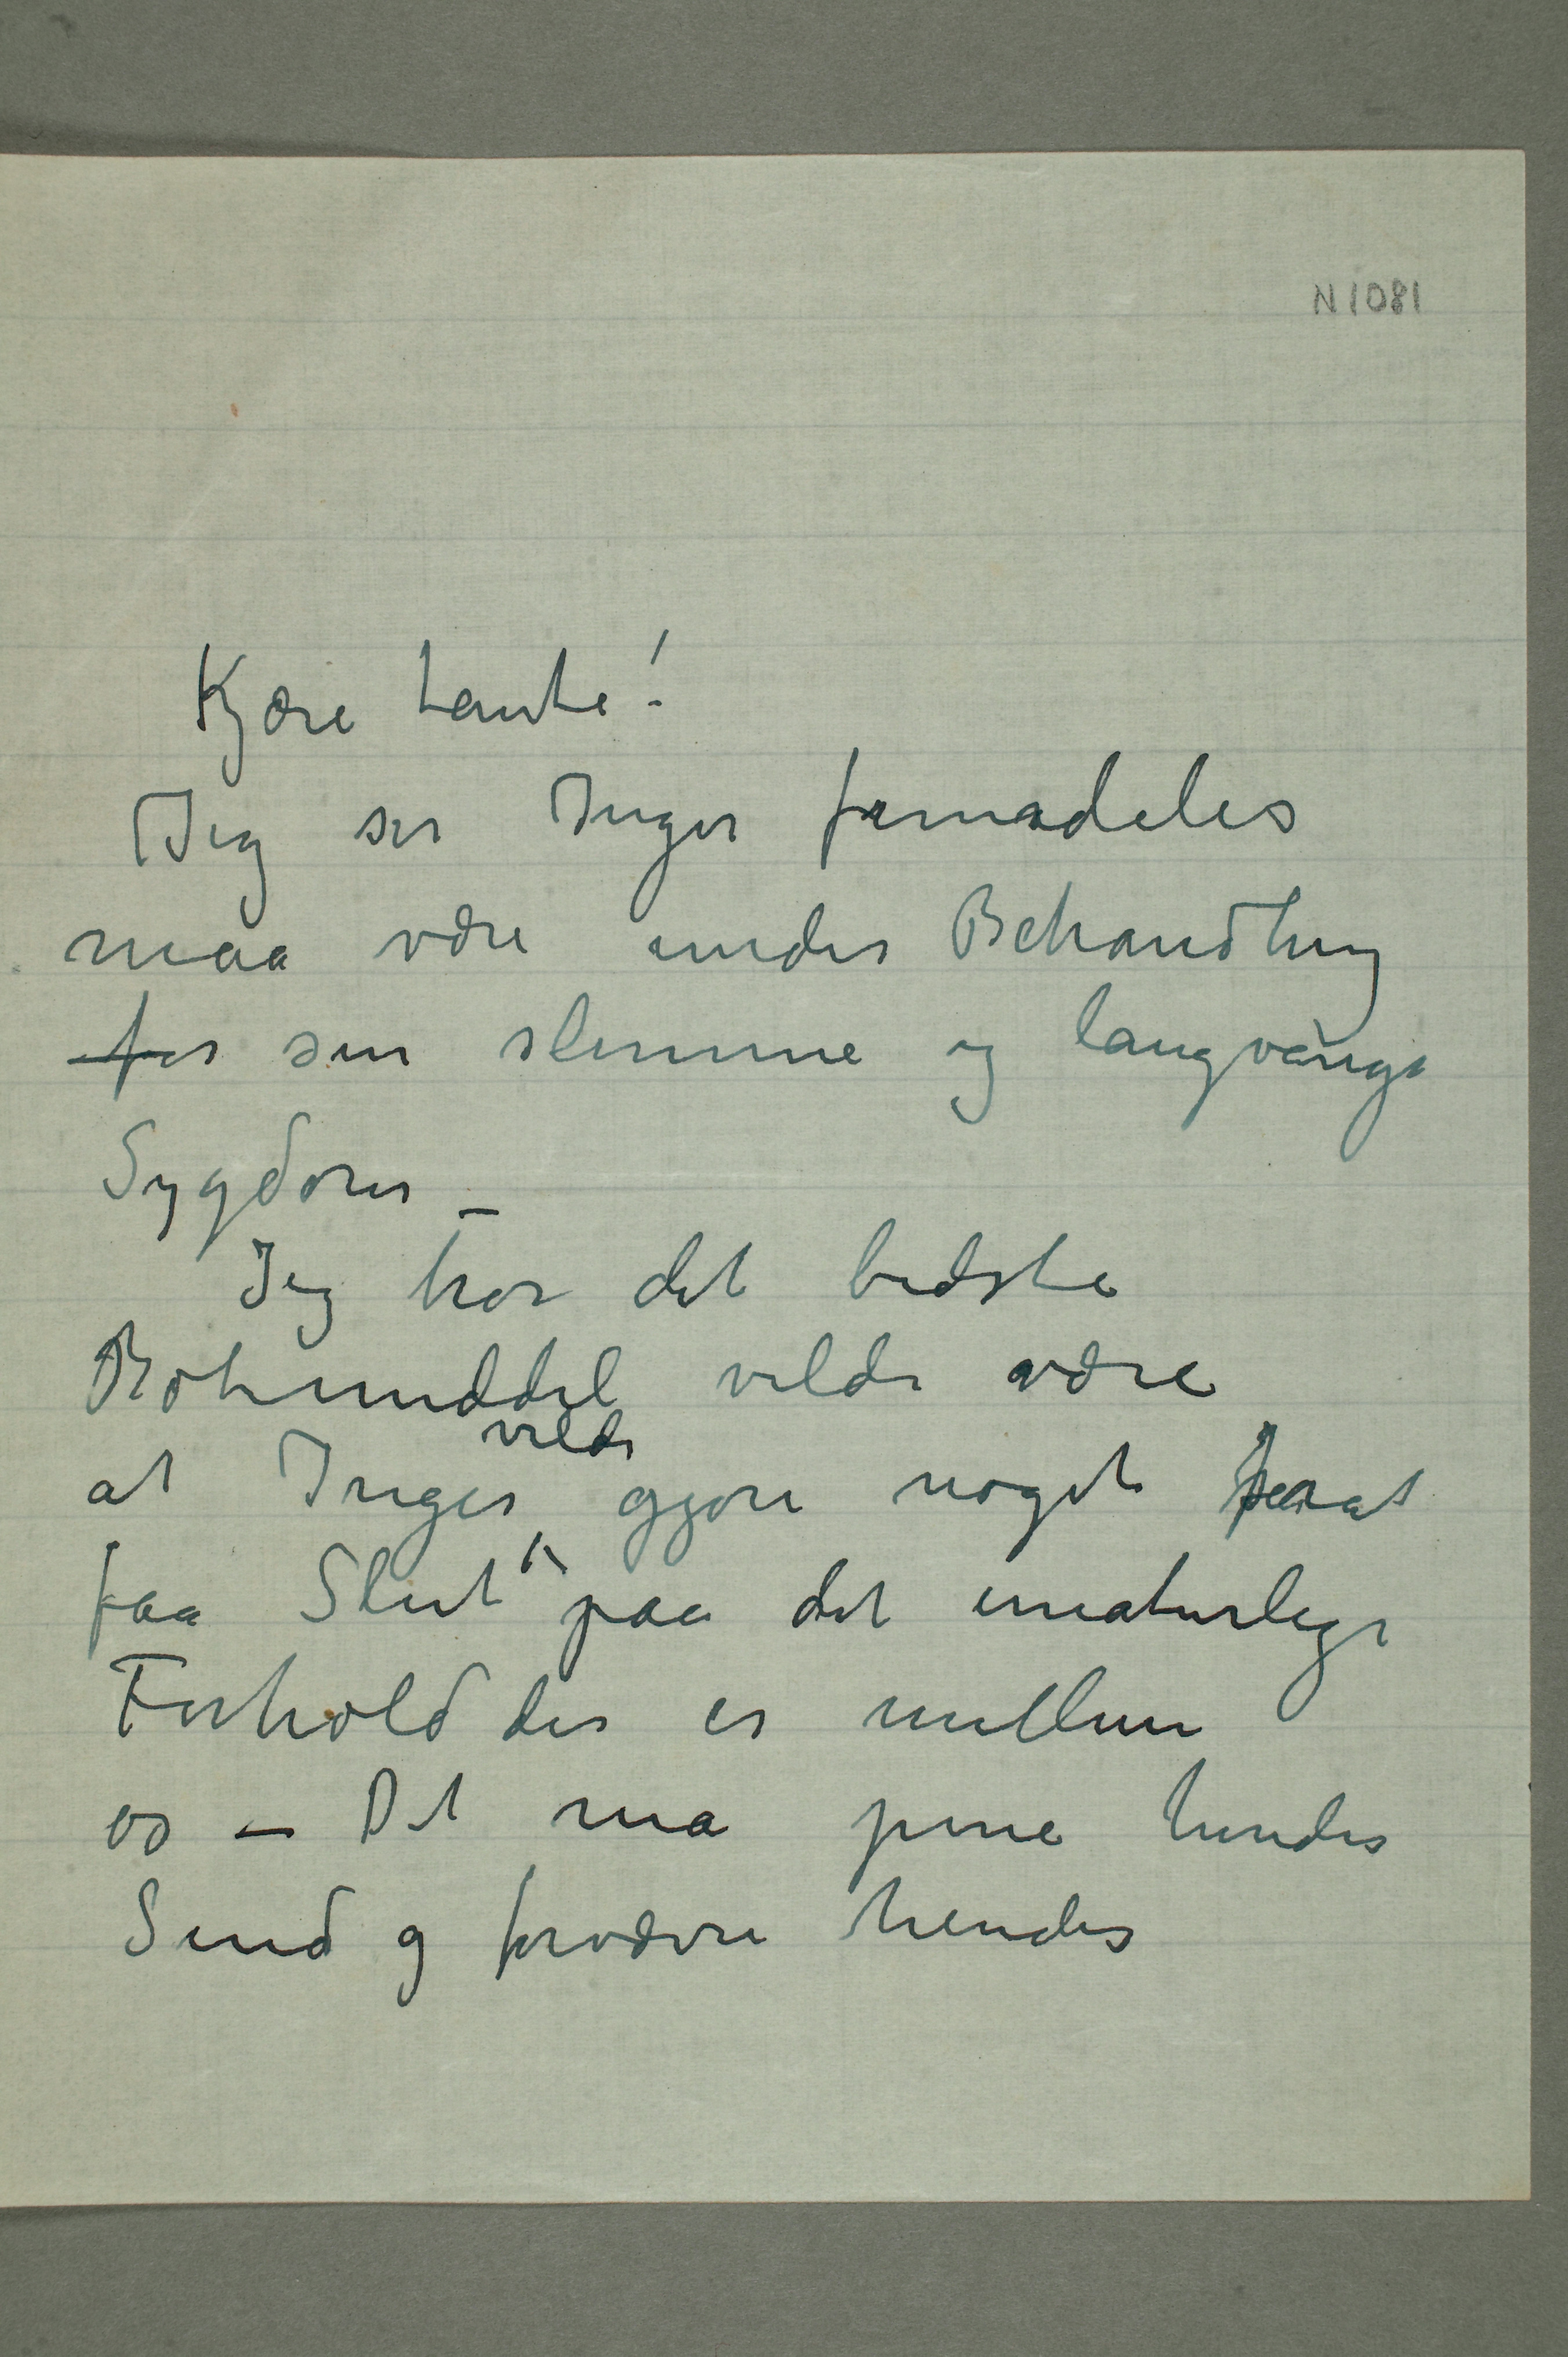 N 1081
Kjære tante!
Jeg ser Inger fremdeles
maa være under Behandling
for sin slemme og langvarige
Sygdom –
Jeg tror det bedste
Botemiddel vilde være
at Inger vilde gjøre noget for at
faa Slut paa det unaturlige
Forhold der er mellem
os – Det må pine hendes
Sind og forværre hendes